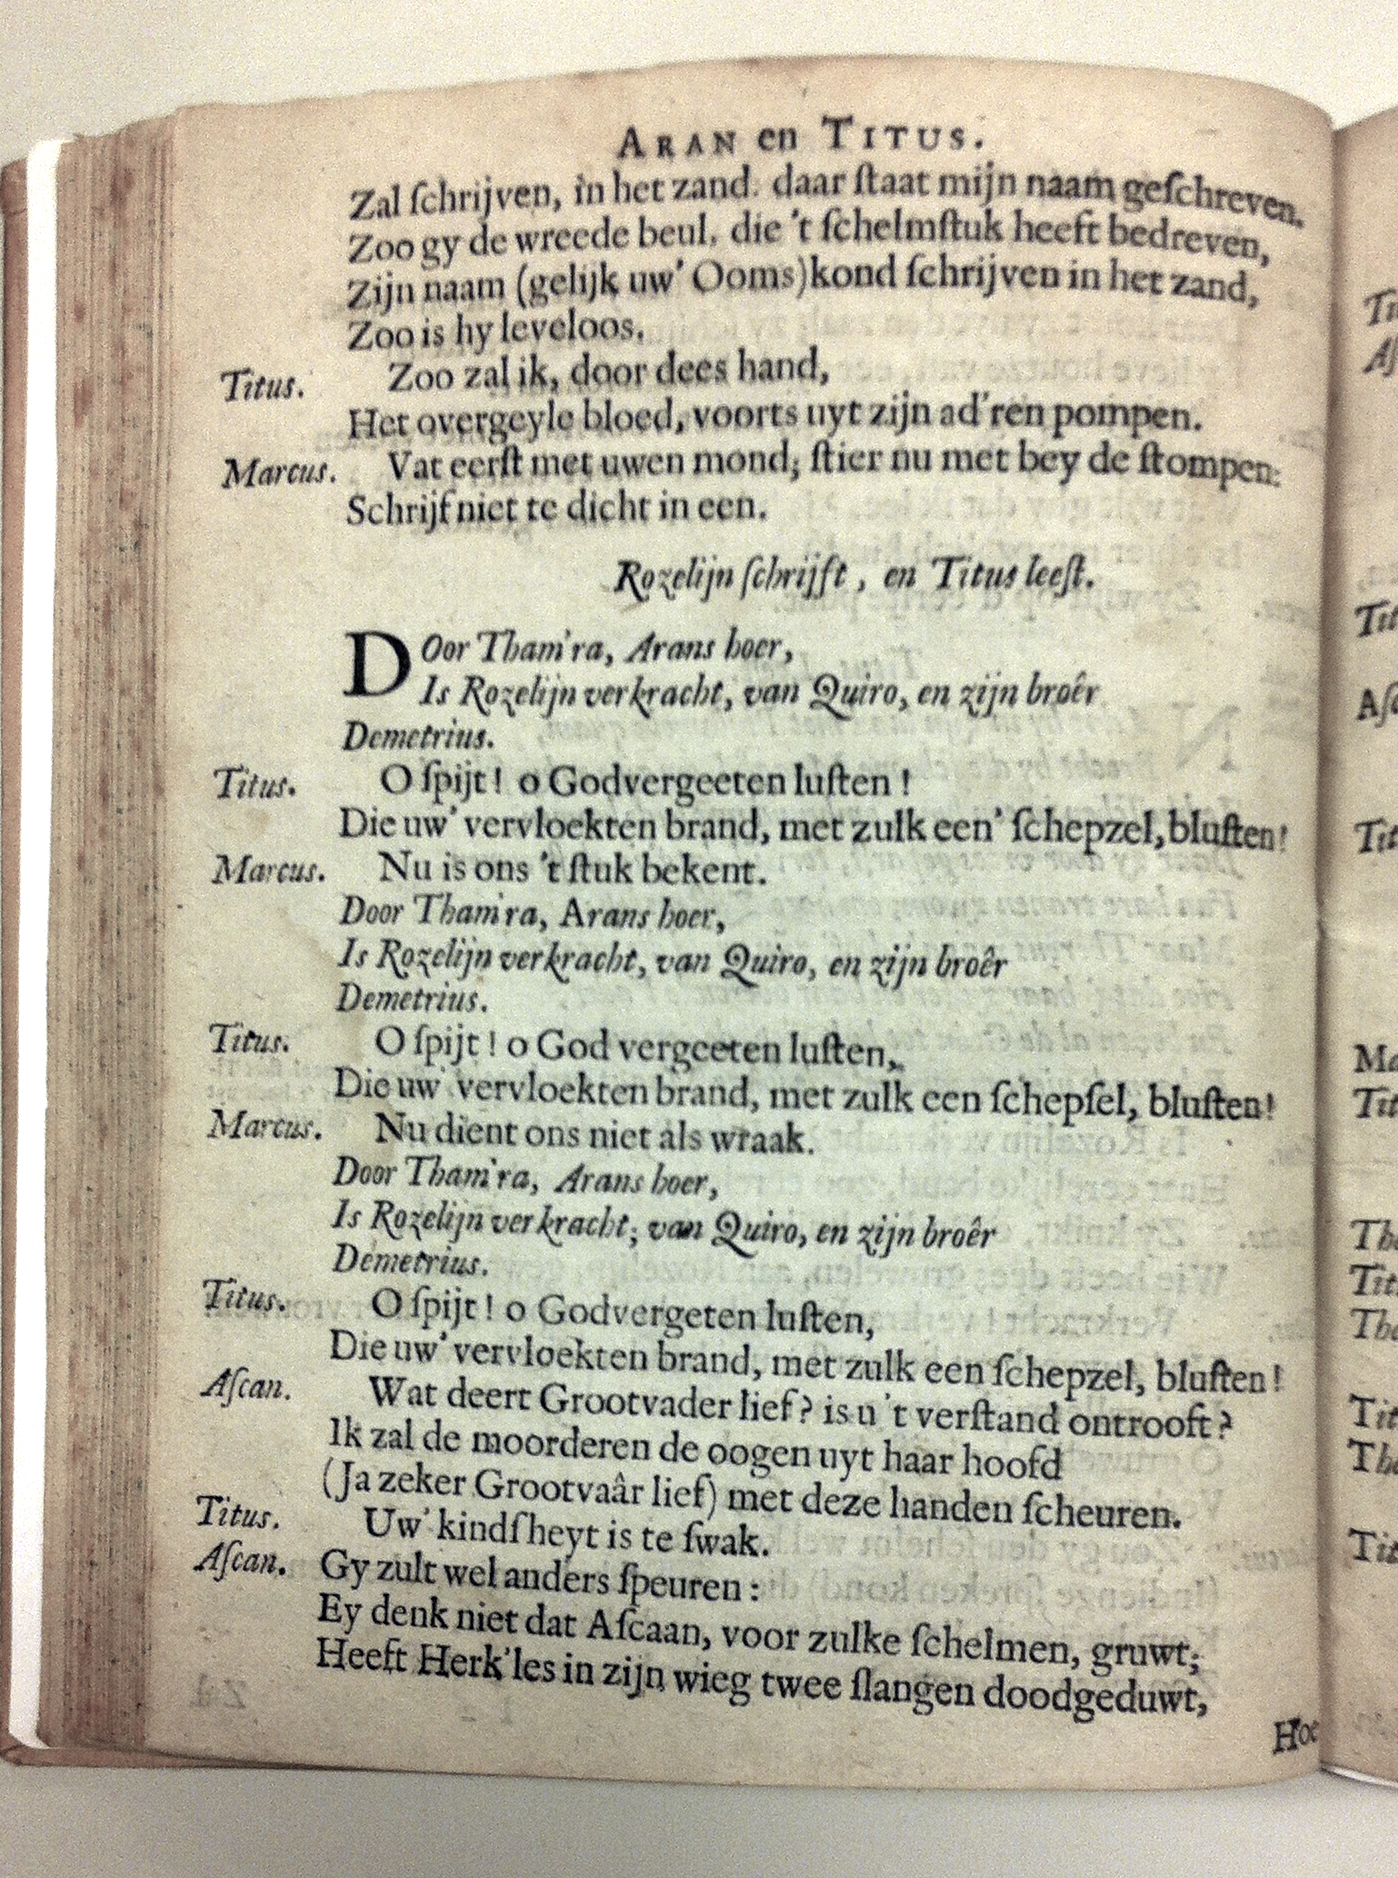 ARAN en TITUS.
Zal ſchrijven, in het zand. daar ſtaat mijn naam geſchreven.
Zoo gy de wreede beul, die 't ſchelmſtuk heeft bedreven,
Zijn naam (gelijk uw' Ooms) kond ſchrijven in het zand,
Zoo is hy leveloos.
Titus. Zoo zal ik, door dees hand,
Het overgeyle bloed, voorts uyt zijn ad'ren pompen.
Marcus. Vat eerſt met uwen mond; ſtier nu met bey de ſtompen:
Schrijf niet te dicht in een.
Rozelijn ſchrijft, en Titus leeſt.
DOor Tham'ra, Arans hoer,
Is Rozelijn verkracht, van Quiro, en zijn broêr
Demetrius.
Titus. O ſpijt! o Godvergeeten luſten!
Die uw' vervloekten brand, met zulk een' ſchepzel, bluſten!
Marcus. Nu is ons 't ſtuk bekent.
Door Tham'ra, Arans hoer,
Is Rozelijn verkracht, van Quiro, en zijn broêr
Demetrius.
Titus. O ſpijt! o God vergeeten luſten,
Die uw' vervloekten brand, met zulk een ſchepſel, bluſten!
Marcus. Nu dient ons niet als wraak.
Door Tham'ra, Arans hoer,
Is Rozelijn verkracht; van Quiro, en zijn broêr
Demetrius.
Titus. O ſpijt! o Godvergeten luſten,
Die uw' vervloekten brand, met zulk een ſchepzel, bluſten!
Aſcan. Wat deert Grootvader lief? is u 't verſtand ontrooft?
Ik zal de moorderen de oogen uyt haar hoofd
(Ja zeker Grootvaâr lief) met deze handen ſcheuren.
Titus. Uw' kindſheyt is te ſwak.
Aſcan. Gy zult wel anders ſpeuren:
Ey denk niet dat Aſcaan, voor zulke ſchelmen, gruwt;
Heeft Herk'les in zijn wieg twee ſlangen doodgeduwt,
Hoe